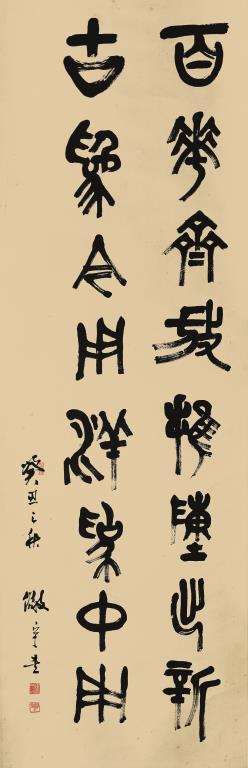 百花齊放推陳出新
古為今用洋為中用
癸丑之秋